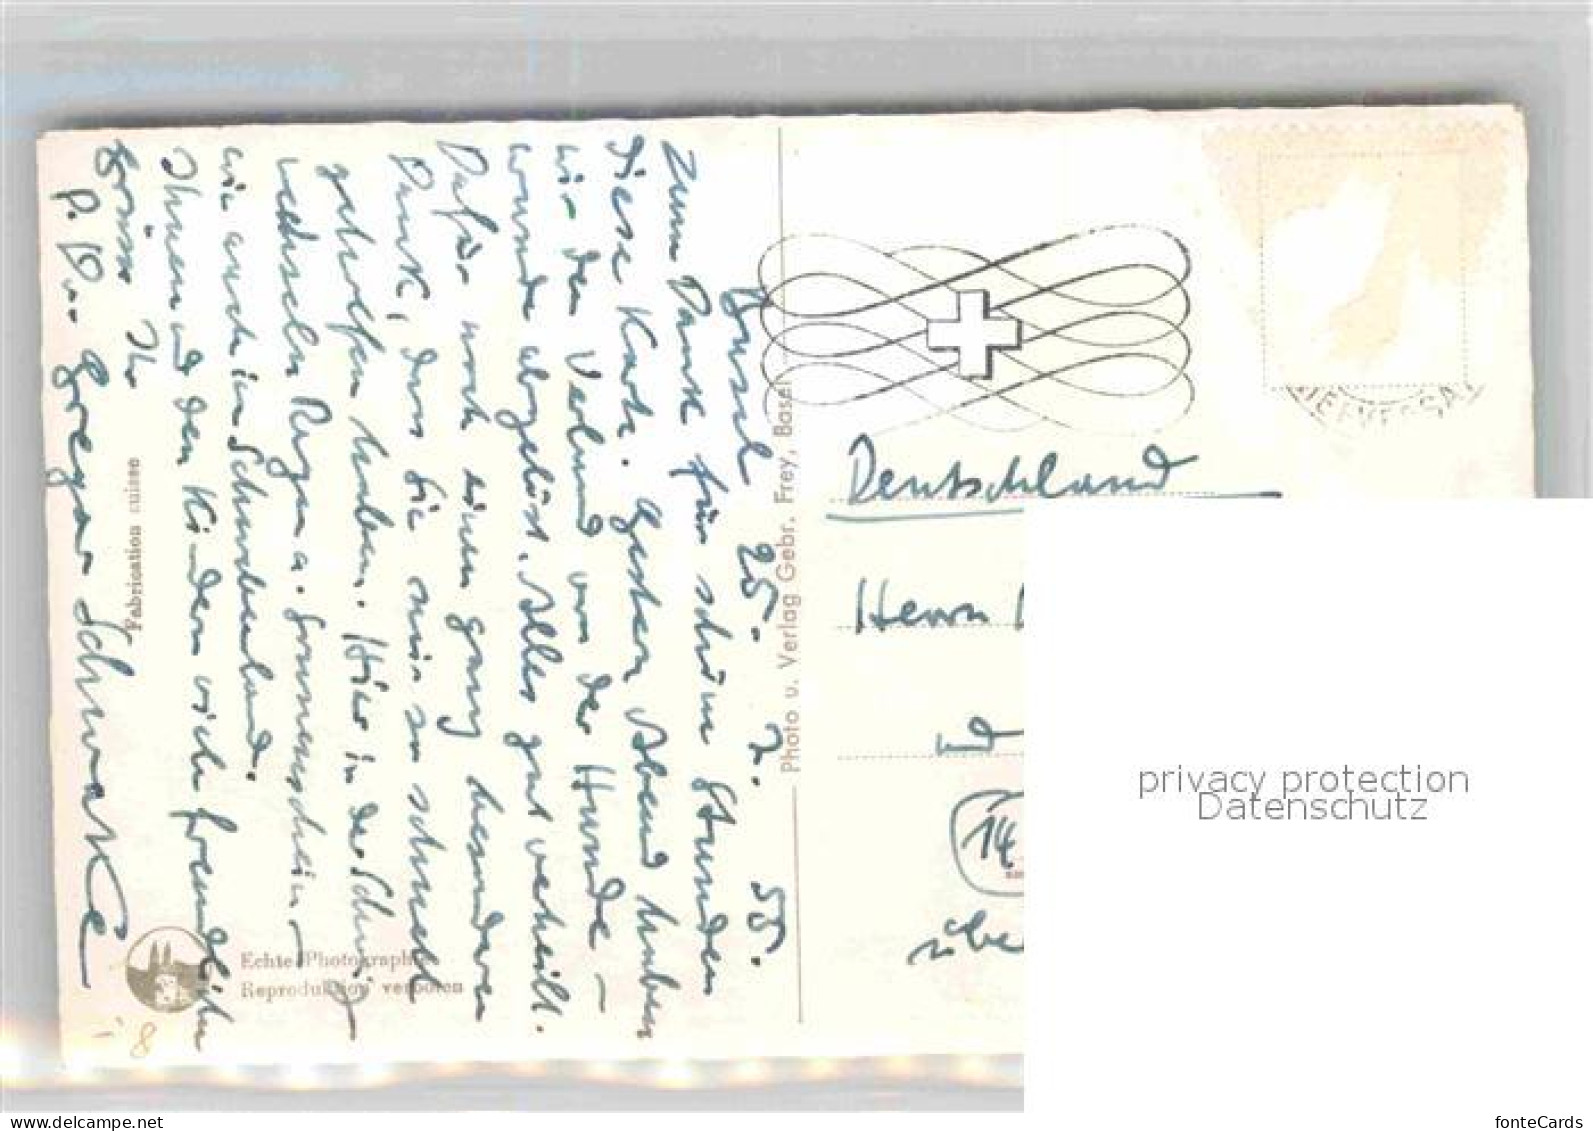 Basel 25. 7. 55.
Zum Dank für schöne Stunden
diese Karte. Gestern Abend haben
wir den Verband von der Hand –
wunde abgelöst. Alles gut verheilt.
Dafür noch einen ganz besonderen
Dank, dass Sie mir so schnell
geholfen haben. Hier in der Schweiz
wechseln Regen u. Sonnenschein –
wie auch im Schwabenland.
Ihnen und den Kindern viele freundliche
Grüsse Ihr
P. Gregor Schwake
Fabrication suisse
Echte Photographie
Reproduktion verboten
Photo u. Verlag Gebr. Frey, Basel
Deutschland
Herrn
und
14
über
8
privacy protection
Datenschutz
fonteCards